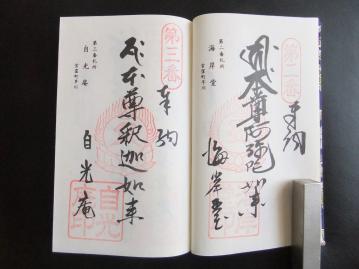 第二番
奉納
本尊阿弥陀如来
海岸堂
第二番札所
海岸堂
第三番
奉納
本尊釈迦如来
自光庵
第三番札所
自光庵
自光庵印